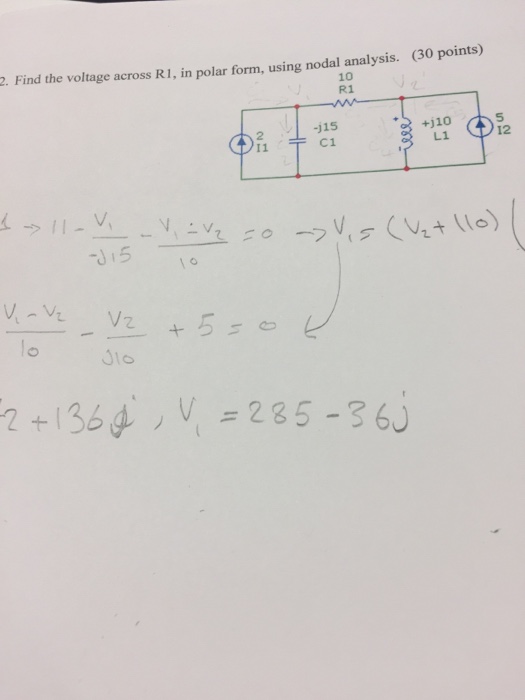 2. Find the voltage across R1, in polar form, using nodal analysis. (30 points)
10
R1
V1
V2
2
I1
-j15
C1
+j10
L1
5
I2
→ 11 - V1/-j15 - V1-V2/10 = 0 → V1 = (V2+110) (
V1-V2/10 - V2/j10 + 5 = 0
2 + 136j, V1 = 285 - 36j